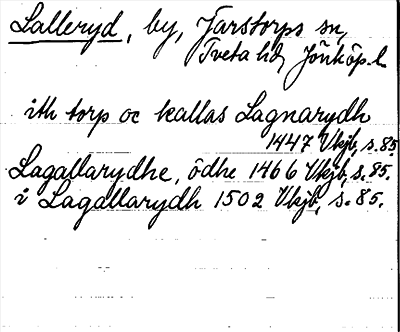 Salleryd, by, Järstorps sn,
Tveta hd, Jönköp. l.
ith torp oc kallas Lagnarydh
1447 Vkjb, s. 85.
Lagallarydhe, ödhe 1466 Vkjb, s. 85.
i Lagallarydh 1502 Vkjb, s. 85.